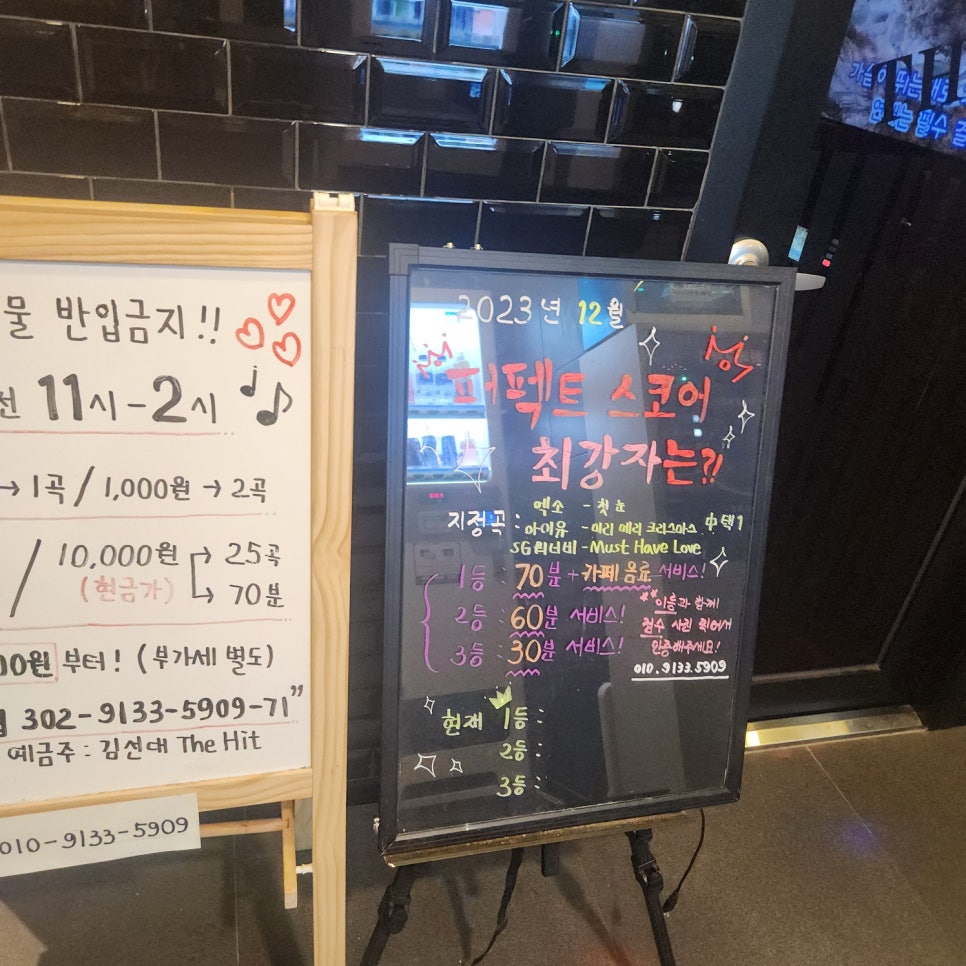 물 반입금지!!
전 11시-2시
→ 1곡 / 1,000원 → 2곡
/ 10,000원 → 25곡
(현금가) → 70분
00원 부터! (부가세 별도)
302-9133-5909-71"
예금주 : 김선대 The Hit
010-9133-5909
2023년 12월
퍼펙트 스코어
최강자는?!
지정곡 : 엑소 - 첫 눈
아이유 - 미리 메리 크리스마스 中 택1
SG워너비 - Must Have Love
1등 : 70분 + 카페 음료 서비스!
2등 : 60분 서비스!
3등 : 30분 서비스!
**이름과 함께
점수 사진 찍어서
인증해주세요!
010.9133.5909
현재 1등 :
2등 :
3등 :